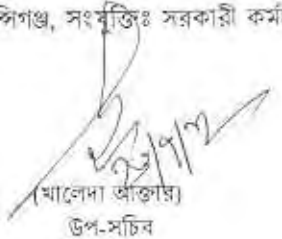 সিগঞ্জ, সংযুক্তিঃ সরকারী কর্ম
(খালেদা আক্তার)
উপ-সচিব